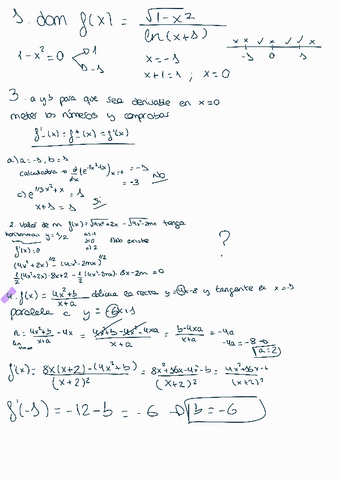 1. dom f(x) = √1-x² / ln(x+1)
1-x²=0 1 -1
x=-1
x+1=1 ; x=0
-1 0 1
3. a y b para que sea derivable en x=0
meter los números y comprobar
f'-(x)=f'+(x)=f'(x)
a) a=-1, b=1
calculadora → d/dx = -3 No
x+1=1 Si
2. Valor de m f(x)=√4x²+2x - √4x²-2mx tenga
horizontal y=3/2 No existe
f'(x)=0
(4x²+2x)^1/2 - (4x²-2mx)^1/2
1/2(4x²+2x)·8x+2 - 1/2(4x²-2mx)·8x-2m=0
?
4. f(x) = 4x²+b / x+a oblicua la recta y=4x-8 y tangente en x=-1
paralela a y=-6x+1
n = 4x²+b / x+a - 4x = 4x²+b-4x²-4xa / x+a = b-4xa / x+a = -4a
-4a=-8 → a=2
f'(x) = 8x(x+2)-(4x²+b) / (x+2)² = 8x²+16x-4x²-b / (x+2)² = 4x²+16x-b / (x+2)²
f'(-1) = -12-b = -6 → b=-6